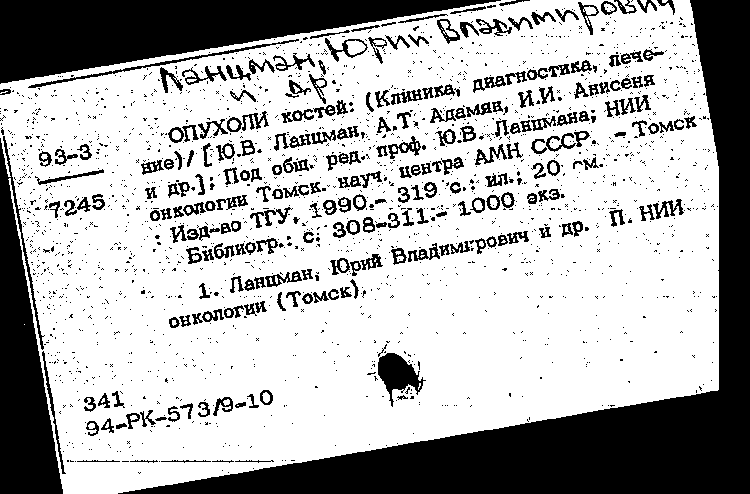 Ланцман, Юрий Владимирович
и др.
93-3
7245
ОПУХОЛИ костей: (Клиника, диагностика, лече-
ние)/ [Ю.В. Ланцман, А.Т. Адамян, И.И. Анисеня
и др.]; Под общ. ред. проф. Ю.В. Ланцмана; НИИ
онкологии Томск. науч. центра АМН СССР. - Томск
: Изд-во ТГУ, 1990.- 319 с.: ил.; 20 см.
Библиогр.: с. 308-311.- 1000 экз.
1. Ланцман, Юрий Владимирович и др. П. НИИ
онкологии (Томск).
341
94-РК-573/9-10